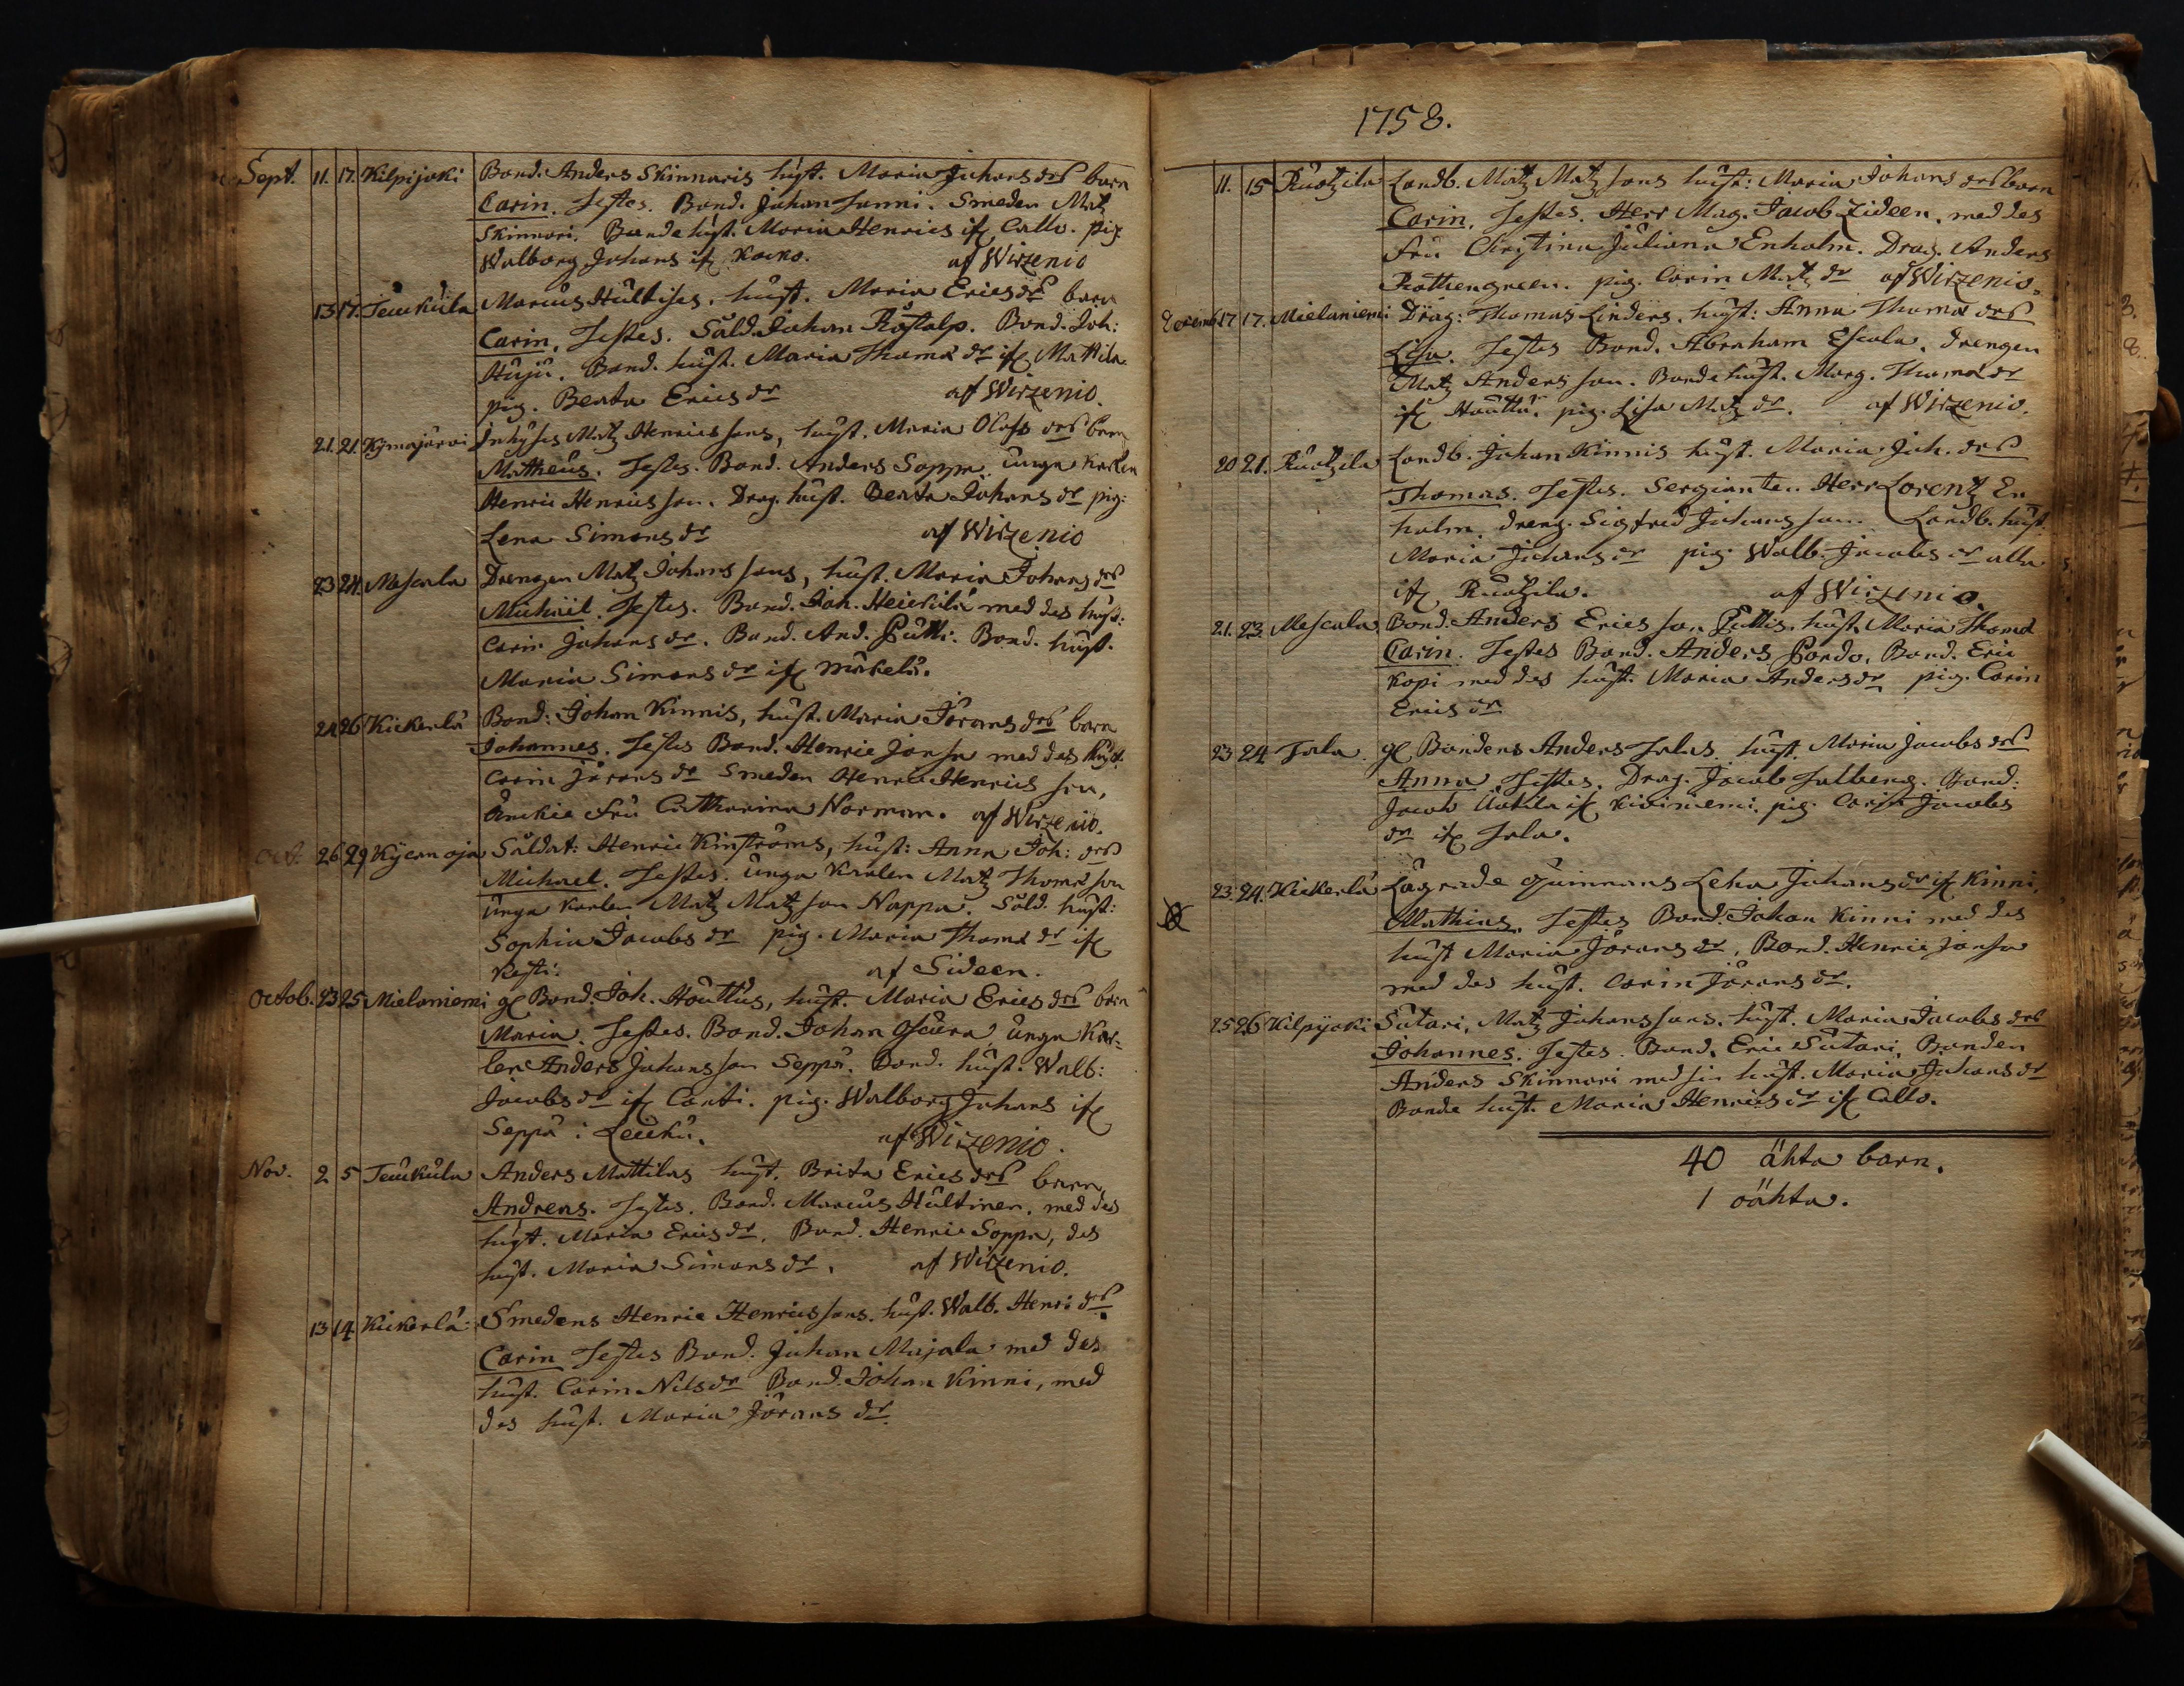 Sept. 11. 17. Kilpijoki Bond. Anders Skinnaris hust. Maria Johans drs barn
Carin. Testes. Bond. Johan Sanni. Smeden Matz
Skinnari. Bonde hust. Maria Henrics if Callo. pig.
Walborg Johans if Kocko. af Wirzenio
13 17. Teuikula Marcus Hultises, hust. Maria Erics drs barn
Carin. Testes. Såld. Johan Råstalp. Bond. Joh:
Huju. Bond. hust. Maria Thoma dr if Mattila.
pig. Beata Erics dr af Wirzenio.
21. 21. Kymajärvi Inhyses Matz Henrics sons, hust. Maria Olofs drs barn
Mattheus. Testes. Bond. Anders Soppa. unga karlen
Henric Henrics son. Drag. hust. Beata Johans dr pig:
Lena Simons dr af Wirzenio
23 24. Mascala Drengen Matz Johans sons, hust. Maria Johans drs
Michäel. Testes. Bond. Joh. Heickilä med des hust:
Carin Johans dr. Bond. And. Putti. Bond. hust.
Maria Simons dr if Mäkelä.
24 26 Kickerlä Bond: Johan Kinnis, hust. Maria Jörans drs barn
Johannes. Testes Bond. Henric Jonsa med des hust.
Carin Jörans dr Smeden Henric Henrics son,
Änckie fru Catharina Norman. af Wirzenio.
Oct. 26 29 Kycenoja Såldat: Henric Kinströms, hust: Anna Joh: drs
Michael. Testes. unga Karlen Matz Thomas son
unga karlen Matz Matz son Nappa. Såld. hust:
Sophia Jacobs dr pig. Maria Thoma dr if
Kesti. af Sideen.
Octob. 23 25 Mielaniemi gl Bond. Joh. Houttus, hust. Maria Erics drs barn
Maria. Testes. Bond. Johan Skura, unga Kar=
len Anders Johans son Seppä. Bond. hust. Walb:
Jacobs dr if Carti. pig. Walborg Johans if
Seppä i Leuku. af Wirzenio.
Nov. 2 5 Teuikula Anders Mattilas hust. Brita Erics drs barn
Andreas. Testes. Bond. Marcus Hultinen, med des
hust. Maria Erics dr. Bond. Henric Soppa, des
hust. Maria Simons dr. af Wirzenio.
13 14. Kickerlä Smedens Henric Henrics sons, hust. Walb. Henri drs
Carin Testes Bond. Johan Majala med des
hust. Carin Nils dr Bond. Johan Kinni, med
des hust. Maria Jörans dr.
1758.
11. 15 Ruotzila Landb. Matz Matz sons hust: Maria Johans drs barn
Carin. Testes. Herr Mag. Jacob Zideen, med des
fru Christina Juliana Enholm. Drag. Anders
Rothengreen. pig. Carin Matz dr af Wirzenio.
Decemb 17 17. Mielaniemi Drag: Thomas Linders, hust: Anna Thoma drs
Lisa. Testes Bond. Abraham Escola, drengen
Matz Anders son. Bonde hust. Marg. Thoma dr
if Houttu, pig. Lisa Matz dr. af Wirzenio.
20 21. Ruotzila Landb. Johan Kinnis hust. Maria Joh. drs
Thomas. Testes. Sergianten Herr Lorentz En
holm. dreng. Sigfred Johans son. Landb. hust.
Maria Johans dr pig. Walb. Jacobs dr alla
if Ruotzila. af Wirzenio.
21. 23. Mascala. Bond. Anders Erics son Puttis. hust. Maria Thoma
Carin. Testes Bond. Anders Pordo, Bond. Eric
Kopi med des hust. Maria Anders dr pig. Carin
Erics dr
23 24 Jala. gl Bondens Anders Jalas. hust. Maria Jacobs drs
Anna Testes. Drag. Jacob Salberg. Bond:
Jacob Uotila if Kiviniemi. pig. Carin Jacobs
dr if Jala.
23. 24. Kickerlä Lägrade quinnans Lena Johans dr if Kinni,
Mathias. Testes Bond. Johan Kinni med des
hust Maria Jörans dr, Bond. Henric Jonsa
med des hust. Carin Jörans dr.
25 26 Kilpijoki Sutari, Matz Johans sons. hust. Maria Jacobs drs
Johannes. Testes. Bond. Eric Sutari, Bonden
Anders Skinnari med sin hust. Maria Johans dr
Bonde hust. Maria Henrics dr if Callo.
40 ähta barn.
1 oähta.